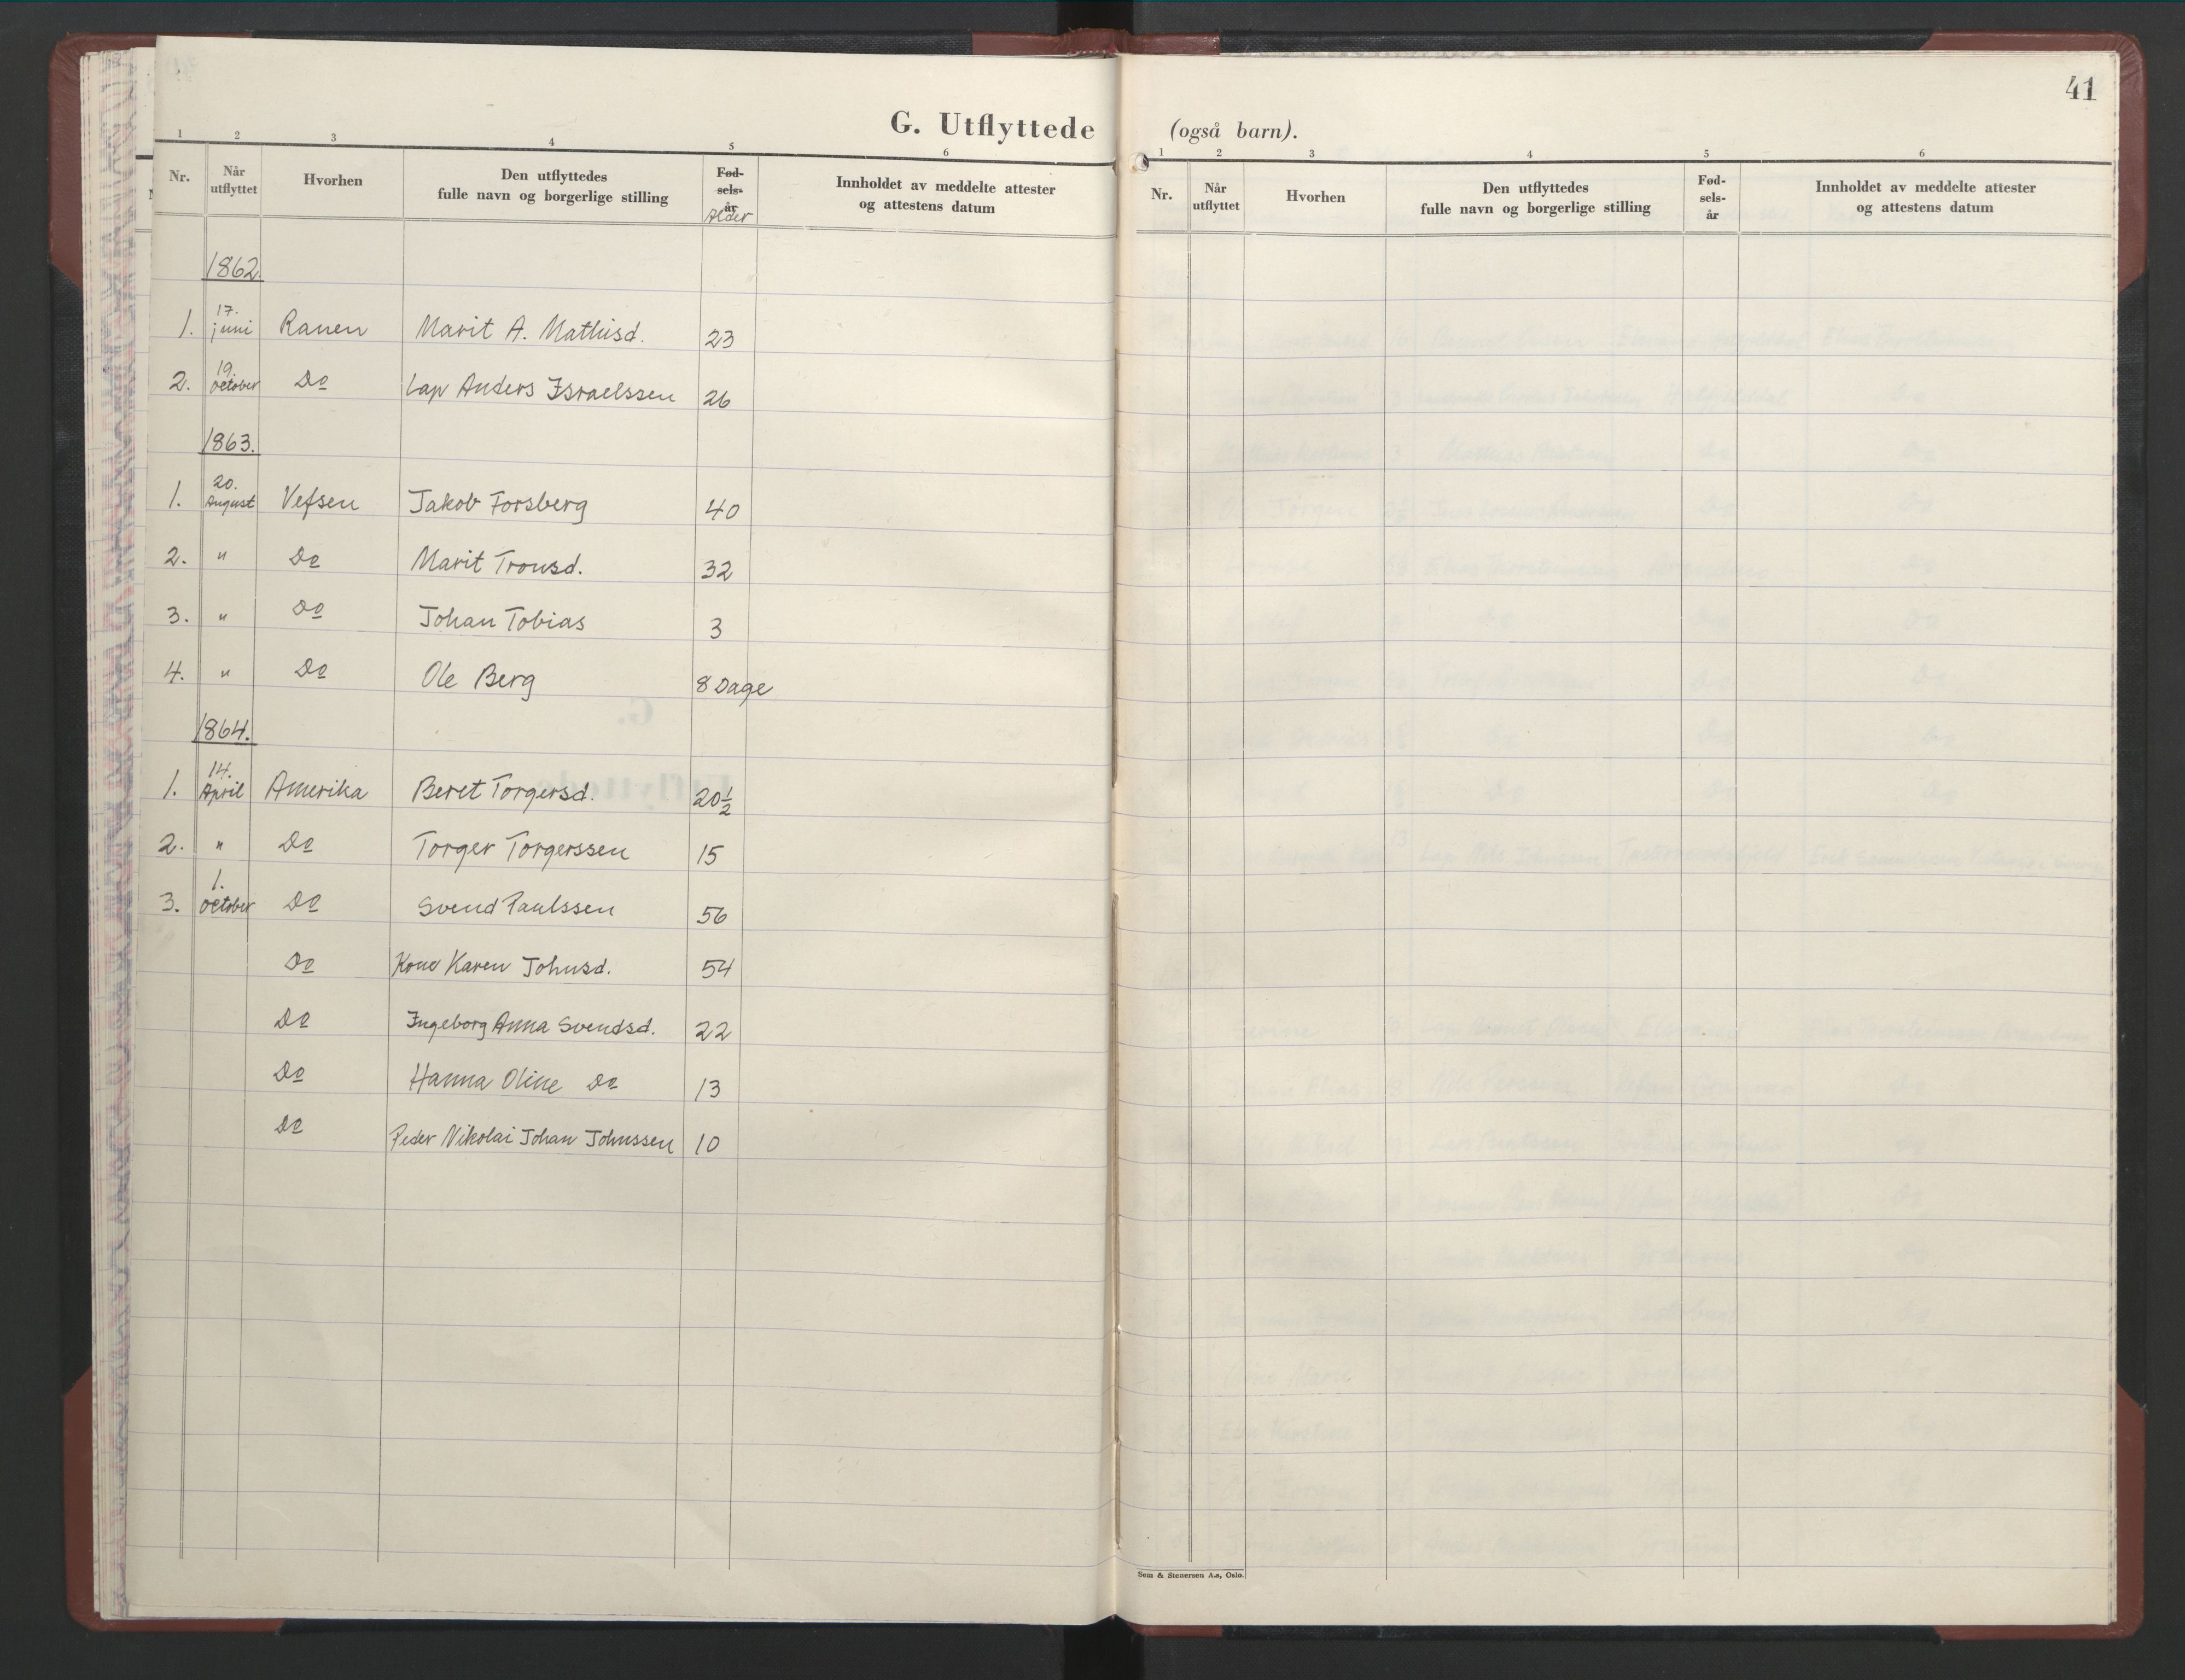 41
G. Utflyttede (også barn).
1 2 3 4 5 6
Nr. Når utflyttet Hvorhen Den utflyttedes fulle navn og borgerlige stilling Fødselsår Alder Innholdet av meddelte attester og attestens datum
1862.
1. 17. juni Ranen Marit A. Mathisd. 23
2. 19. October Do Lap Anders Israelssen 26
1863.
1. 20. August Vefsen Jakob Forsberg 40
2. " Do Marit Tronsd. 32
3. " Do Johan Tobias 3
4. " Do Ole Berg 8 Dage
1864.
1. 14. April Amerika Beret Torgersd. 20½
2. " Do Torger Torgerssen 15
3. 1. October Do Svend Paulssen 56
Do Kone Karen Johnsd. 54
Do Ingeborg Anna Svendsd. 22
Do Hanna Oline Do 13
Do Peder Nikolai Johan Johnssen 10
1 2 3 4 5 6
Nr. Når utflyttet Hvorhen Den utflyttedes fulle navn og borgerlige stilling Fødselsår Innholdet av meddelte attester og attestens datum
Sem & Stenersen A.s, Oslo.